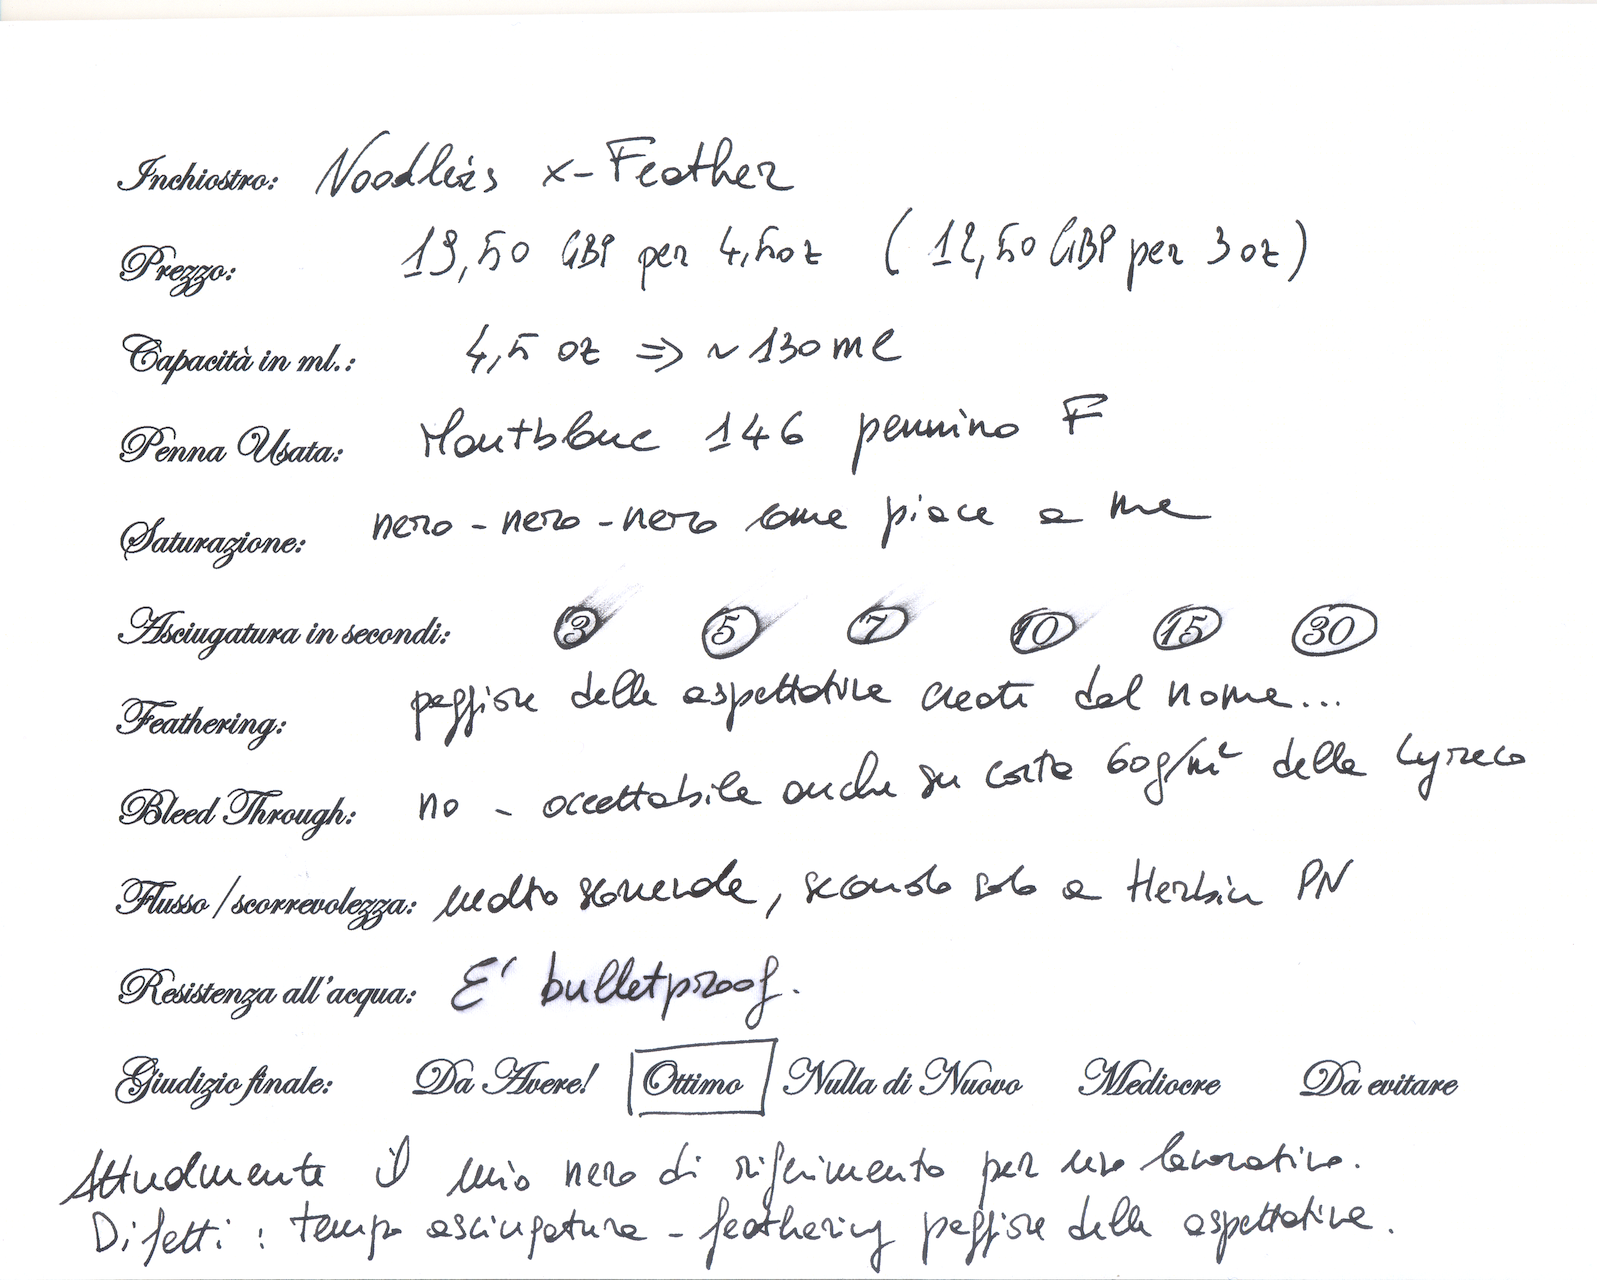 Inchiostro: Noodler's x-Feather
Prezzo: 19,50 GBP per 4,5oz (12,50 GBP per 3 oz)
Capacità in ml.: 4,5 oz => ~130 ml
Penna Usata: Montblanc 146 pennino F
Saturazione: nero-nero-nero come piace a me
Asciugatura in secondi: 3 5 7 10 15 30
Feathering: peggiore delle aspettative create dal nome...
Bleed Through: no - accettabile anche su carta 60g/m² della Lyreco
Flusso/scorrevolezza: molto scorrevole, secondo solo a Herbin PN
Resistenza all'acqua: E' bulletproof.
Giudizio finale: Da Avere! Ottimo Nulla di Nuovo Mediocre Da evitare
Attualmente il mio nero di riferimento per uso lavorativo.
Difetti: tempo asciugatura - feathering peggiore delle aspettative.